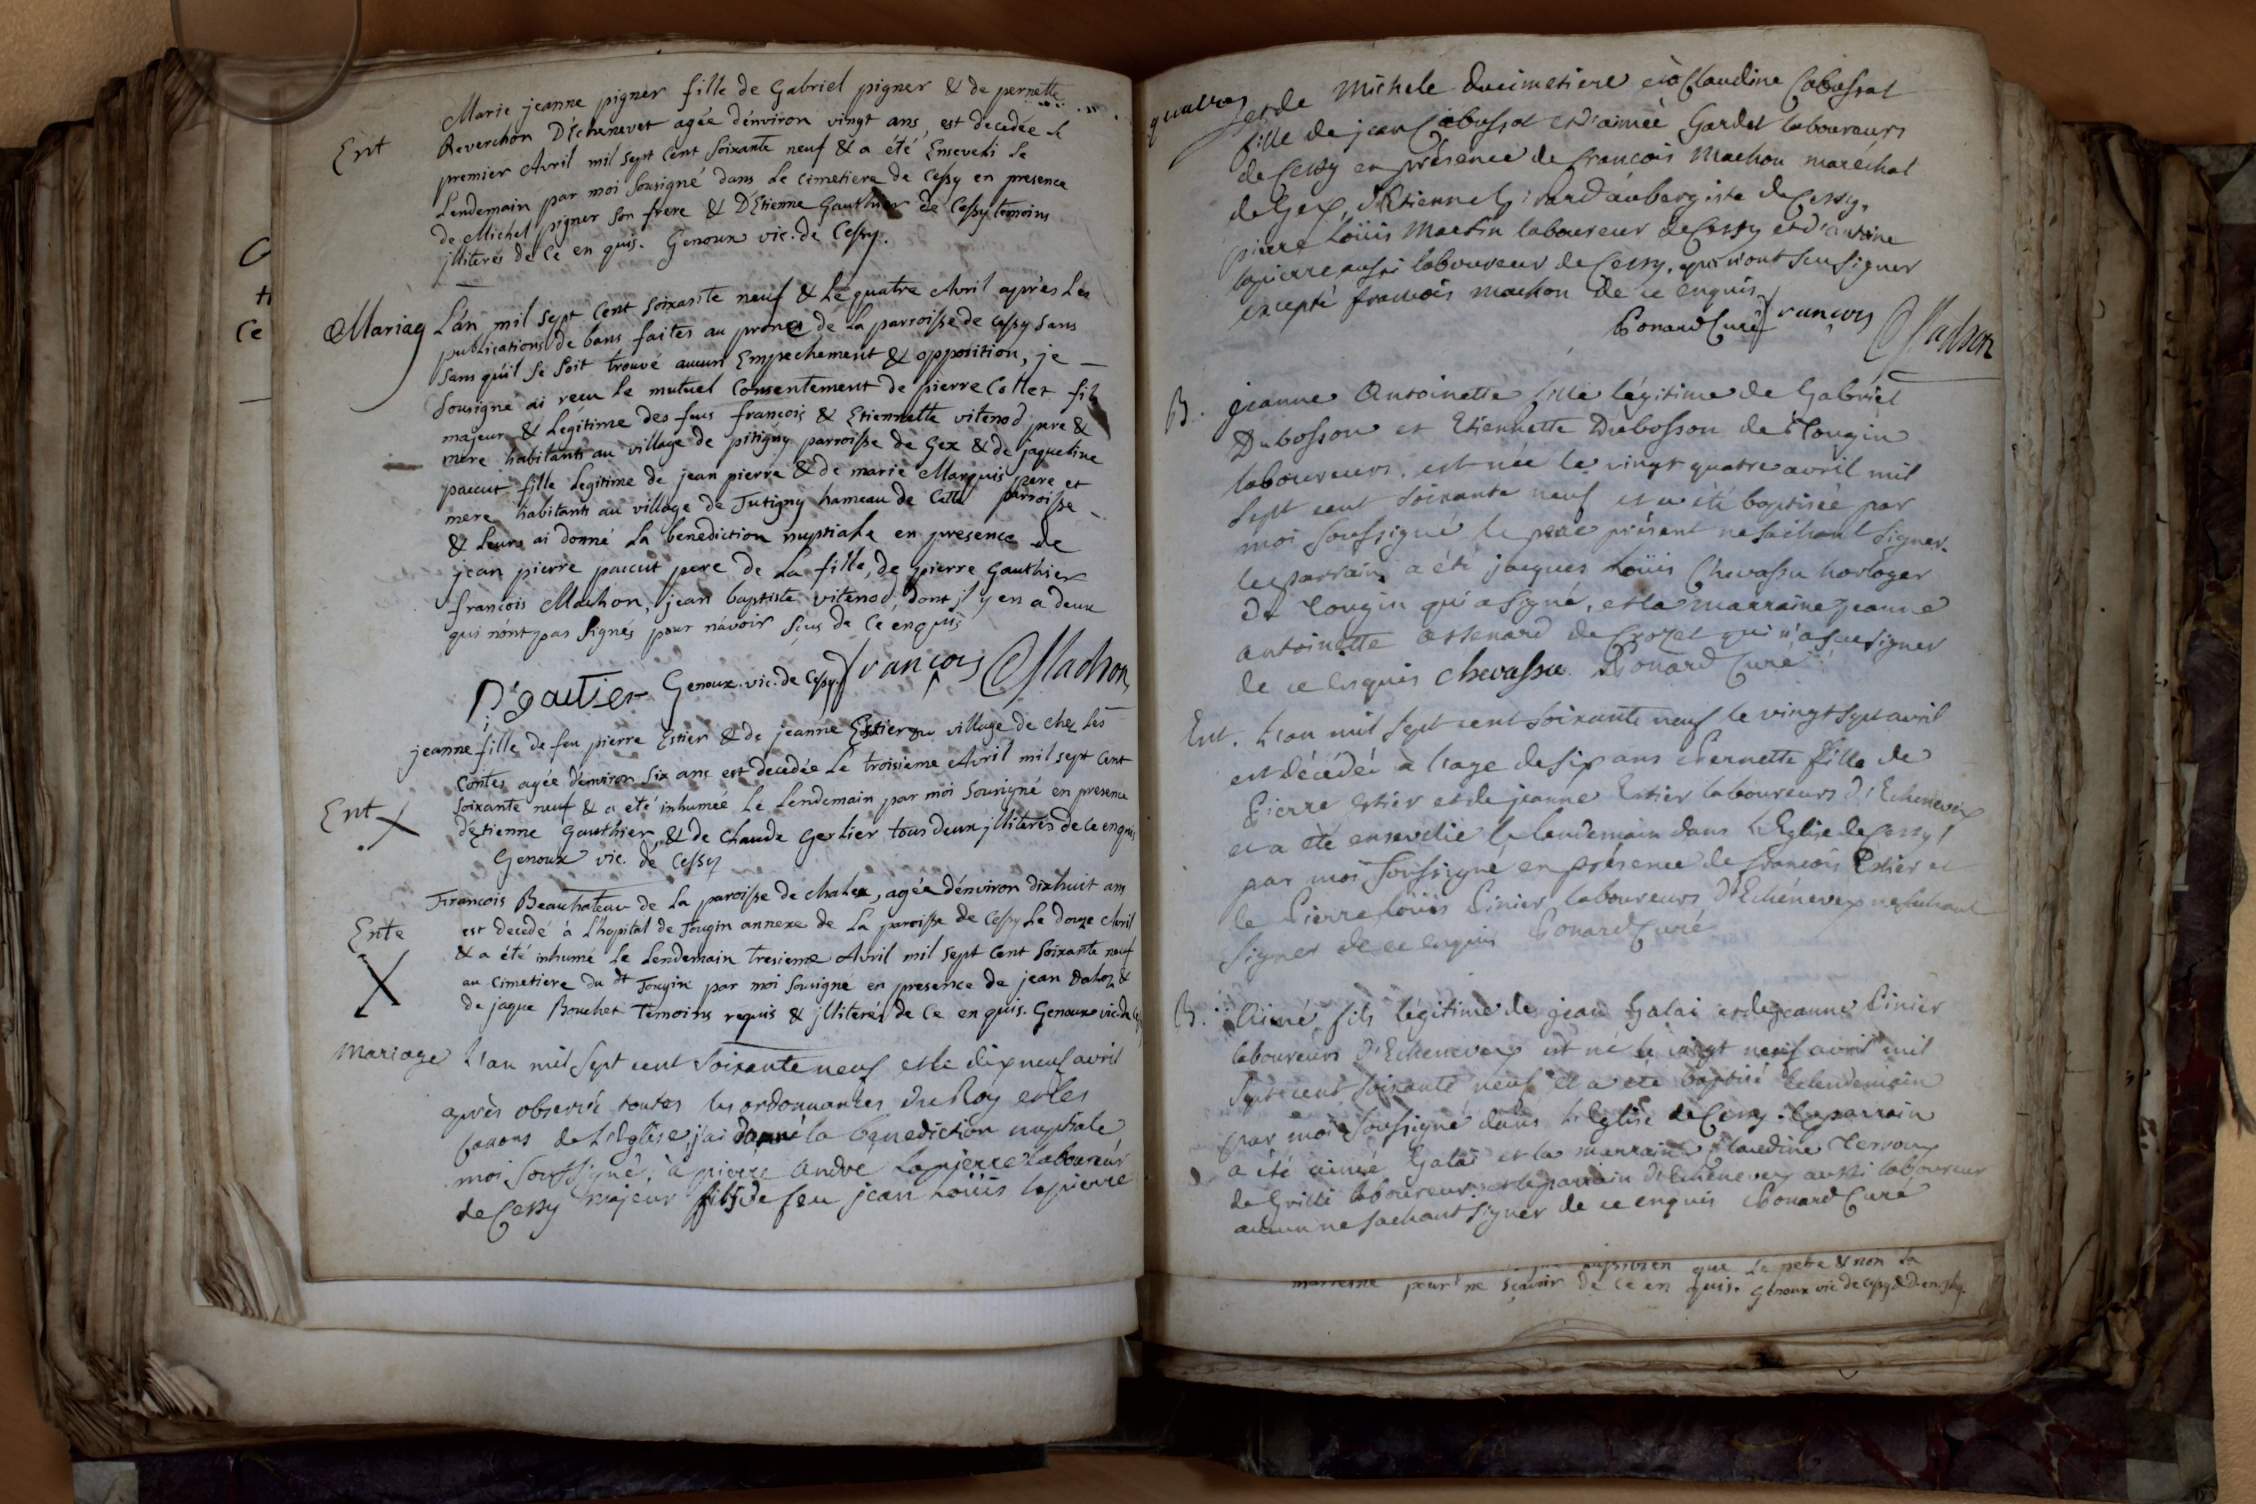 Marie jeanne pigner fille de Gabriel pigner & de pernette
Ent
Reverchon D'Echenevet agée d'environ vingt ans, est decedée le
premier Avril mil sept cent soixante neuf & a été Enseveli le
Lendemain par moi sousigné dans le cimetiere de Cessy en presence
de Michel pigner son frere & D'Etienne Gauthier de Cessy temoins
jlliterés de ce en quis. Genoux vic. de Cessy.
Mariag
L'an mil sept cent soixante neuf & Le quatre Avril après Les
publications de bans faites au prone de La parroisse de Cessy sans
sans qu'il se soit trouvé aucun Empechement & opposition, je
sousigné ai reçu le mutuel consentement de pierre Collet fils
majeur & Légitime des feus francois & Etiennette vitenod pere &
mere habitants au village de pitigny parroisse de Gex & de jaqueline
paicut fille Legitime de jean pierre & de marie Marquis pere et
mere habitants au village de Tutigny hameau de Cette parroisse
& Leurs ai donné La benediction nuptiale en presence de
jean pierre paicut pere de La fille, de pierre Gauthier
francois Machon, jean baptiste vitenod, dont jl y en a deux
qui n'ont pas signés pour n'avoir sçus de ce enquis
P gautier Genoux vic. de Cessy françois Machon
jeanne fille de feu pierre Estier & de jeanne Estier du village de chez Les
Contes agée d'environ six ans est decedée Le troisieme Avril mil sept cent
Ent
soixante neuf & a été inhumée Le Lendemain par moi sousigné en presence
d'Etienne Gauthier, & de Claude Gerlier tous deux jlliterés de ce enquis
Genoux vic. de Cessy
François Beauchateau de La paroisse de chalex, agée d'environ dixhuit ans
Ente
est decedé à L'hopital de Tougin annexe de La paroisse de Cessy Le douze Avril
& a été inhumé Le Lendemain tresieme Avril mil sept cent soixante neuf
au cimetiere du dt Tougin par moi sousigné en presence de jean Daloz &
de jaque Bouchet Temoins requis & jlliterés de Ce en quis. Genoux vic. de
Mariage
L'an mil sept cent soixante neuf et le dix neuf avril
après observé toutes les ordonnances du Roy et les
canons de L'Eglise, j'ai donné la benediction nuptiale
moi soussigné, à pierre André Lapierre laboureur
de Cessy majeur fils de feu jean Loüis lapierre
et de Michele Ducimetiere et à Claudine Cabussat
fille de jean Cabussat et d'aimeé Gardet laboureurs
de Cessy en présence de francois Machon maréchal
de Gex, d'Etienne Girard aubergiste de Cessy,
pierre Loüis Martin laboureur de Cessy et d'antoine
lapierre aussi laboureur de Cessy, qui n'ont seu signer
excepté francois machon de ce enquis
Bonard Curé françois Machon
B.
jeanne Antoinette fille légitime de Gabriel
Dubosson et Etiennette Dubosson de Tougin
laboureurs, est née le vingt quatre avril mil
sept cent soixante neuf et a été baptisée par
moi soussigné le pere présent ne sachant signer.
le parrain a été jacques Loüis Chevassu horloger
de Tougin qui a signé, et la marraine jeanne
antoinette de Crozet qui n'a seu signer
de ce enquis chevassu Bonard Curé
Ent.
L'an mil sept cent soixante neuf le vingt sept avril
est décédée à l'age de six ans Pernette fille de
Pierre Estier et de jeanne Estier laboureurs d'Echenevex
et a été ensevelie le lendemain dans L'Eglise de Cessy
par moi soussigné en présence de francois Estier et
de Pierre Loüis Pinier laboureurs d'Echénevex ne sachant
signer de ce enquis Bonard Curé
B.
Aimé fils légitime de jean Galai et de jeanne Pinier
laboureurs d'Echenevex est né le vingt neuf avril mil
sept cent soixante neuf et a été baptisé le lendemain
par moi soussigné dans L'Eglise de Cessy. le parrain
a été aimé Galai et la marraine claudine
de Grilli laboureur et le parrain d'Echenevex aussi laboureur
aucun ne sachant signer de ce enquis Bonard Curé
que Le pere & non La
marreine pour ne sçavoir de ce en quis. Genoux vic de Cessy